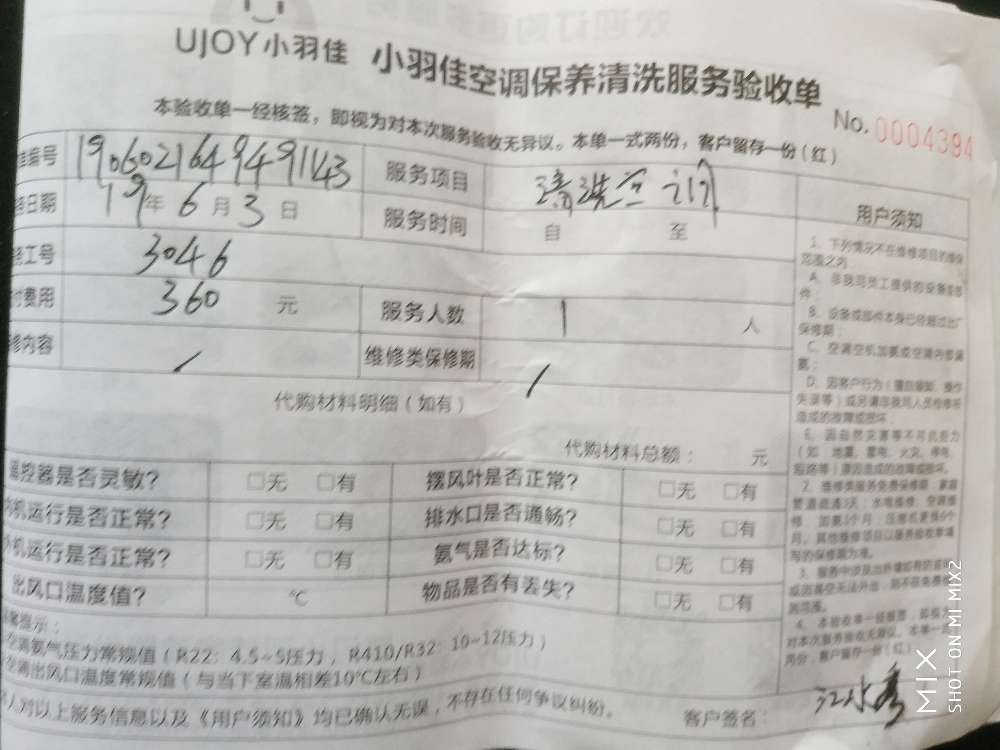 UJOY小羽佳 小羽佳空调保养清洗服务验收单
本验收单一经核签，即视为对本次服务验收无异议。本单一式两份，客户留存一份（红）
No. 0004394
编号 190602164949143 服务项目 清洗空调
日期 19年6月3日 服务时间 自 至
工号 3046
费用 360 元 服务人数 1 人
修内容 / 维修类保修期 /
代购材料明细（如有）
代购材料总额： 元
温控器是否灵敏？ □无 □有 摆风叶是否正常？ □无 □有
机运行是否正常？ □无 □有 排水口是否通畅？ □无 □有
机运行是否正常？ □无 □有 氨气是否达标？ □无 □有
出风口温度值？ ℃ 物品是否有丢失？ □无 □有
提示：
空调氨气压力常规值（R22：4.5~5压力，R410/R32：10~12压力）
空调出风口温度常规值（与当下室温相差10℃左右）
本人对以上服务信息以及《用户须知》均已确认无误，不存在任何争议纠纷。
客户签名：
用户须知
1、下列情况不在维修项目的维保
范围之内：
A、非我司员工提供的设备或部
件；
B、设备或部件本身已经超过出厂
保修期；
C、空调空机加氨或空调内部漏
氨；
D、因客户行为（擅自装卸、操作
失误等）或另请非我司人员检修所
造成的故障或损坏
E、因自然灾害等不可抗拒力
（如 地震、雷电、火灾、停电、
短路等）原因造成的故障或损坏。
2、维修类服务免费保修期：家庭
管道疏通3天；水电维修、空调维
修、加氨3个月；压缩机更换6个
月。其他维修项目以服务验收单填
写的保修期为准。
对本次服务验收无异议。本单一式
两份，客户留存一份（红）
MIX
SHOT ON MI MIX2